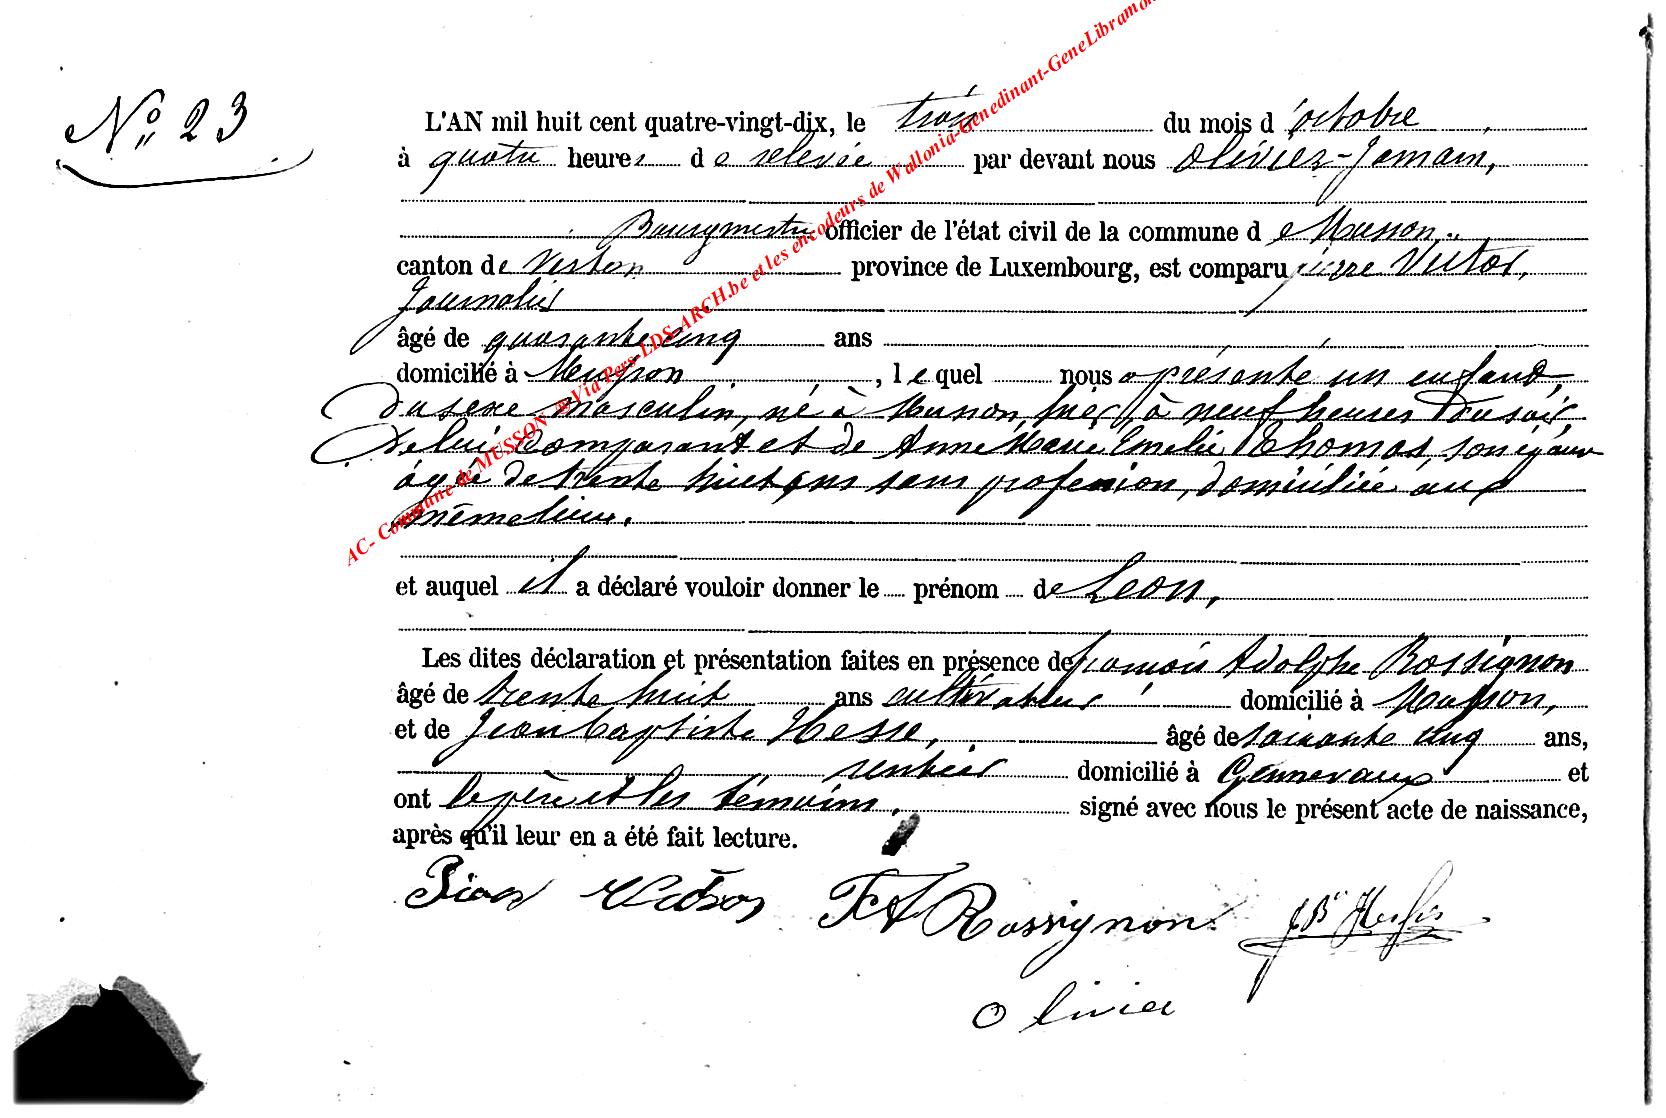 N° 23
L'AN mil huit cent quatre-vingt-dix, le trois du mois d'octobre,
à quatre heures de relevée par devant nous Olivier-Jamain,
Bourgmestre officier de l'état civil de la commune de Musson,
canton de Virton province de Luxembourg, est comparu pierre Victor,
Journalier
âgé de quarante cinq ans
domicilié à Musson, lequel nous a présenté un enfant,
du sexe masculin, né à Musson hier, à neuf heures du soir,
de lui comparant et de Anne Marie Emelie Thomas, son épouse
âgée de trente huit ans sans profession, domiciliée au
même lieu.
et auquel il a déclaré vouloir donner le prénom de Leon,
Les dites déclaration et présentation faites en présence de françois Adolphe Rossignon
âgé de trente huit ans cultivateur domicilié à Musson,
et de Jean Baptiste Hesse, âgé de soixante cinq ans,
rentier domicilié à Gennevaux et
ont le père et les témoins, signé avec nous le présent acte de naissance,
après qu'il leur en a été fait lecture.
F A Rossignon
Olivier
AC- Commune de MUSSON @Via Pers-LDS-ARCH.be et les encodeurs de Wallonia-Genedinant-GeneLibramon